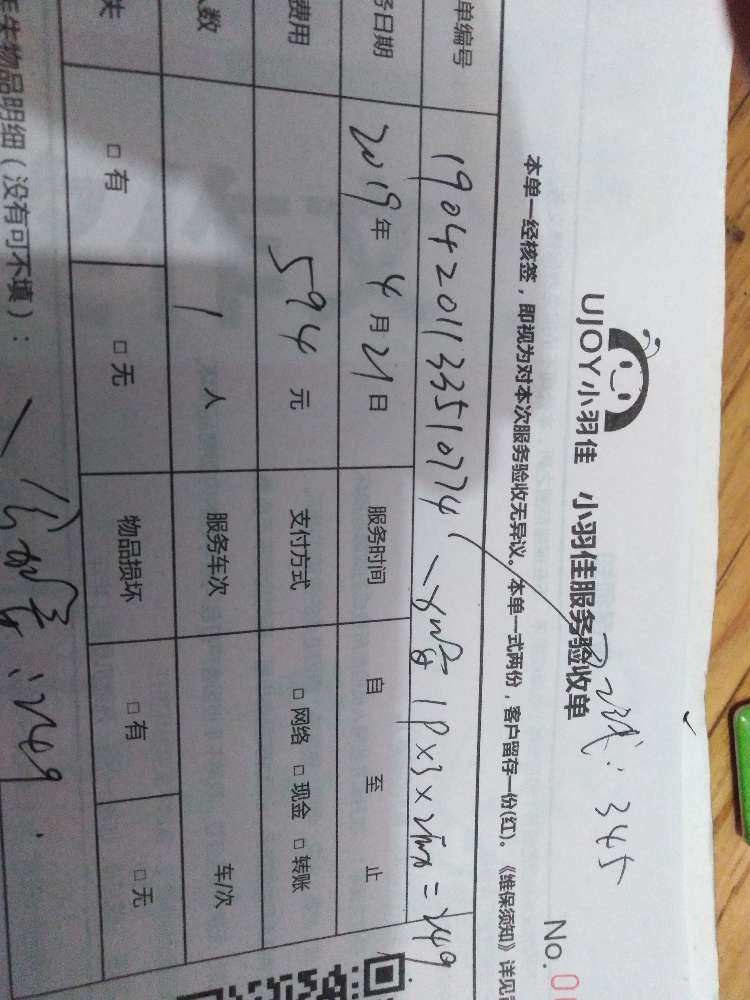 UJOY小羽佳 小羽佳服务验收单
345
No.0
本单一经核签，即视为对本次服务验收无异议。本单一式两份，客户留存一份(红)。《维保须知》详见
单编号 19042011335510774 1P×3× =249
务日期 2019年4月21日 服务时间 自 至 止
费用 594元 支付方式 □网络 □现金 □转账
人数 1人 服务车次 车/次
失 □有 □无 物品损坏 □有 □无
失物品明细（没有可不填）： :249